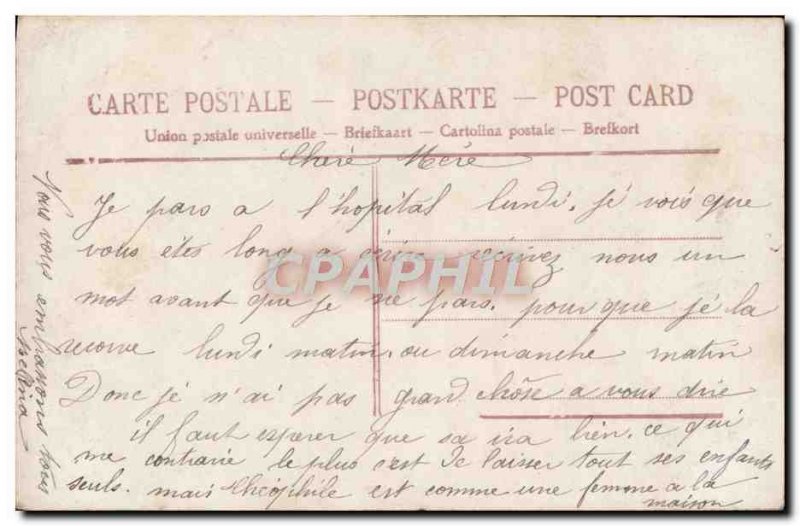 CARTE POSTALE — POSTKARTE — POST CARD
Union postale universelle — Briefkaart — Cartolina postale — Brefkort
Chère Mère
Je pars a l'hopital lundi. Je vois que
vous êtes long a écrire écrivez nous un
mot avant que je ne pars. pour que je la
recoive lundi matin. ou dimanche matin
Donc je n'ai pas grand chôse a vous dire
il faut esperer que sa ira bien. ce qui
me contrarie le plus s'est de laisser tout ses enfants
seuls. mais Théophile est comme une femme a la
maison
Nous vous embrassons tous
CPAPHIL